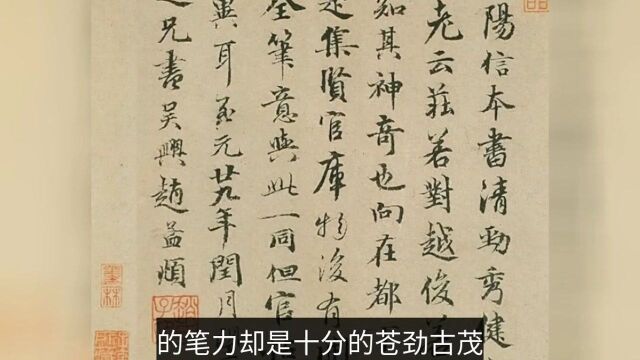 陽信本書清勁秀健
老云莊若對越俊
知其神奇也向在都
是集賢官庫物後有
全筆意與此一同但官
異耳至元廿九年閏月
兄書吳興趙孟頫
墨林
的笔力却是十分的苍劲古茂